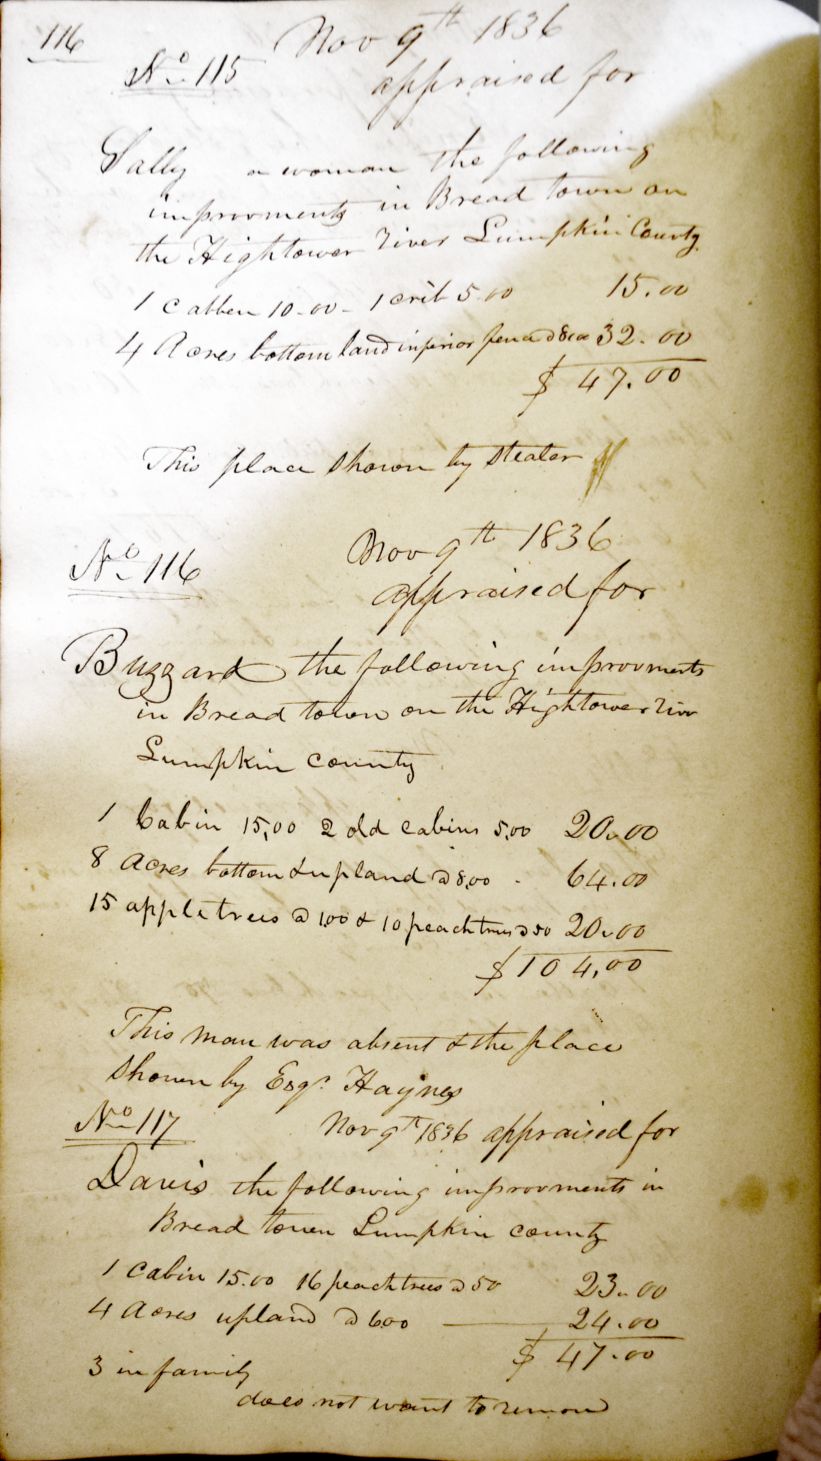 116
Nov 9th 1836
No 115
appraised for
Sally a woman the following
improvments in Bread town on
the Hightower River Lumpkin County
1 cabben 10.00 - 1 crib 5.00 15.00
4 Acres bottom land inferior fence @ 8ea 32.00
$ 47.00
This place shown by Stealer
Nov 9th 1836
No 116
appraised for
Buzzard the following improvments
in Bread town on the Hightower River
Lumpkin county
1 Cabin 15,00 2 old cabins 5,00 20.00
8 Acres bottom & upland @ 8,00 - 64.00
15 apple trees @ 1,00 & 10 peach trees @ 50 20.00
$ 104,00
This man was absent & the place
shown by Esqr Haynes
No 117
Nov 9th 1836 appraised for
Davis the following improvments in
Bread town Lumpkin county
1 cabin 15.00 16 peach trees @ 50 23.00
4 Acres upland @ 600 24.00
$ 47.00
3 in family
does not want to remove